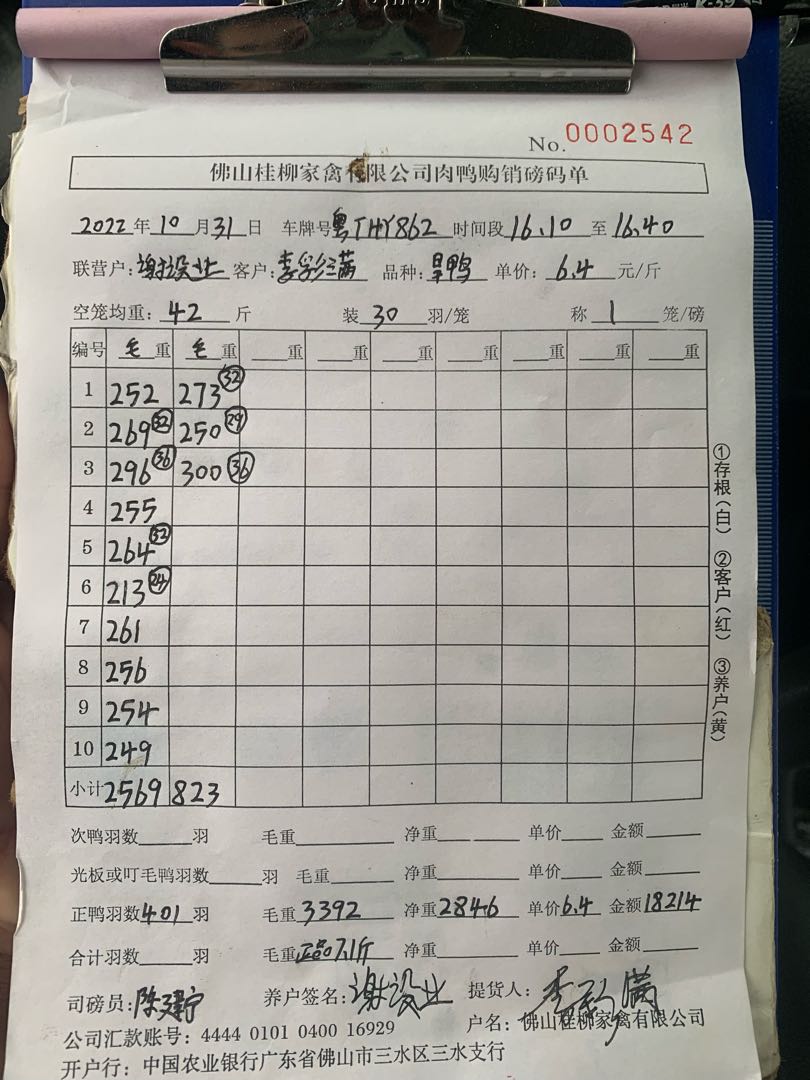 No. 0002542
佛山桂柳家禽有限公司肉鸭购销磅码单
2022年10月31日 车牌号粤THY862 时间段16.10至16.40
联营户:谢设业 客户:李彩满 品种:旱鸭 单价:6.4元/斤
空笼均重:42斤 装30羽/笼 称1笼/磅
编号 毛重 毛重 重 重 重 重 重 重 重
1 252 273 32
2 269 32 250 29
3 296 36 300 36
4 255
5 264 32
6 213 24
7 261
8 256
9 254
10 249
小计 2569 823
①存根(白) ②客户(红) ③养户(黄)
次鸭羽数 羽 毛重 净重 单价 金额
光板或叮毛鸭羽数 羽 毛重 净重 单价 金额
正鸭羽数401羽 毛重3392 净重2846 单价6.4 金额18214
合计羽数 羽 毛重 7.1斤 净重 单价 金额
司磅员:陈建宁 养户签名:谢设业 提货人:李彩满
公司汇款账号:4444 0101 0400 16929 户名:佛山桂柳家禽有限公司
开户行:中国农业银行广东省佛山市三水区三水支行